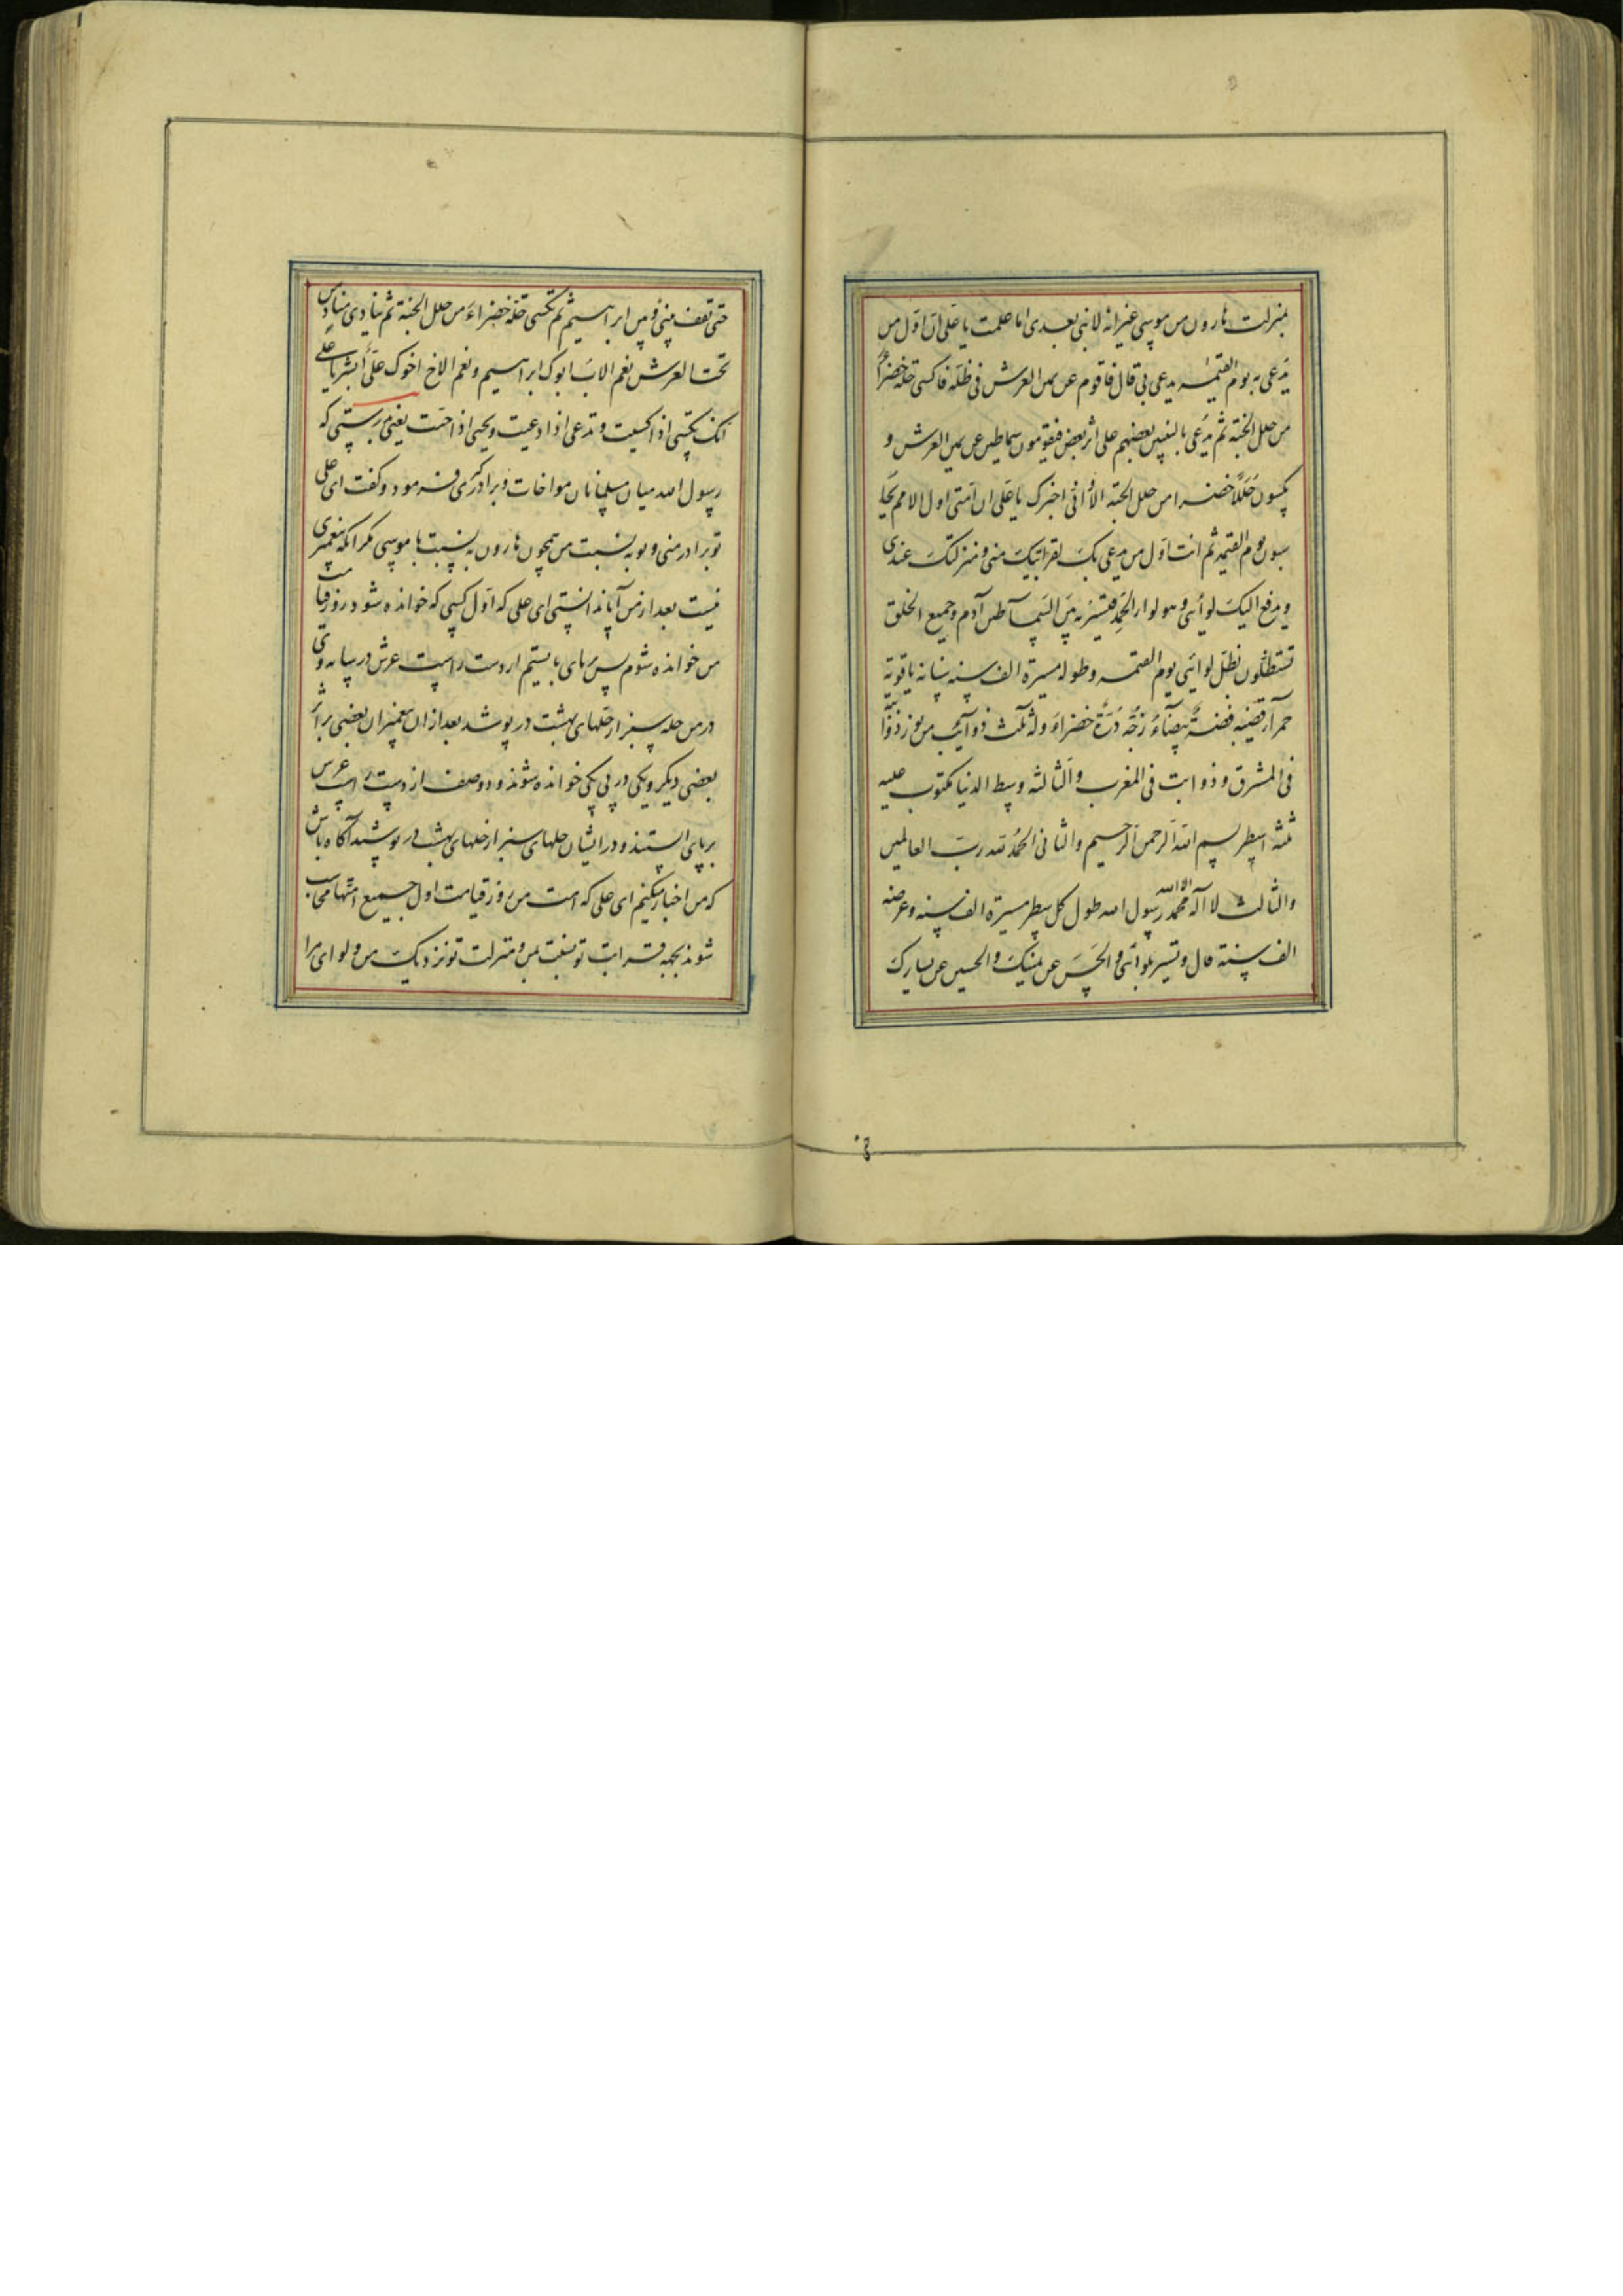 بمنزلت هارون من موسی غیر انه لا نبی بعدی اما علمت یا علی ان اول من
یدعی به یوم القیمه یدعی بی قال فاقوم عن یمین العرش فی ظله فاکسی حلة خضرآء
من حلل الجنة ثم یدعی بالنبیین بعضهم علی اثر بعض فیقومون سماطین عن یمین العرش و
یکسون حللا خضرا من حلل الجنة الا و انی اخبرک یا علی ان امتی اول الامم یحا
سبون یوم القیمة ثم انت اول من یدعی بک لقرابتیک منی و منزلتک عندی
و یدفع الیک لوائی و هو لواء الحمد فتسیر به بین السماطین آدم و جمیع الخلق
تستظلون بظل لوائی یوم القیمه و طوله مسیرة الف سنه سنانه یاقوتة
حمرآء قضیبه فضة بیضآء زجه درة خضراء وله ثلث ذوآیب من نور ذوابة
فی المشرق و ذوابت فی المغرب و الثالثه وسط الدنیا مکتوب علیه
ثلثه اسطر بسم الله الرحمن الرحیم والثانی الحمد لله رب العالمین
والثالث لا اله الا الله محمد رسول الله طول کل سطر مسیرة الف سنه و عرضه
الف سنة قال و تسیر بلوائی والحسن عن یمینک والحسین عن یسارک
حتی تقف بینی و بین ابراهیم ثم تکسی حلة خضراء من حلل الجنة ثم ینادی مناد من
تحت العرش نعم الاب ابوک ابراهیم و نعم الاخ اخوک علی ابشر یا علی
انک تکسی اذا کسیت و تدعی اذا دعیت و یحیی اذا حیت یعنی بدرستی که
رسول الله میان مسلمانان مواخات و برادرکری فرمود و کفت ای علی
تو برادر منی و تو به نسبت من همچون هارون به نسبت با موسی مکر انکه پیغمبری
نیست بعد از من آیا ندانستی ای علی که اول کسی که خوانده شود روز قیامت
من خوانده شوم پس برپای بایستم از دست راست عرش در سایه وی
در من حله سبز از حلهای بهشت در پوشند بعد از ان پیغمبران بعضی بر اثر
بعضی دیکر و یکی در پی یکی خوانده شوند و دو صف از دست راست عرش
برپای ایستند و در ایشان حلهای سبز از حلهای بهشت در پوشند آکاه باش
که من اخبار میکنم ای علی که امت من روز قیامت اول جمیع امتها محاسب
شوند بجهة قرابت تو نسبت بمن و منزلت تو نزدیک من و لوای مرا